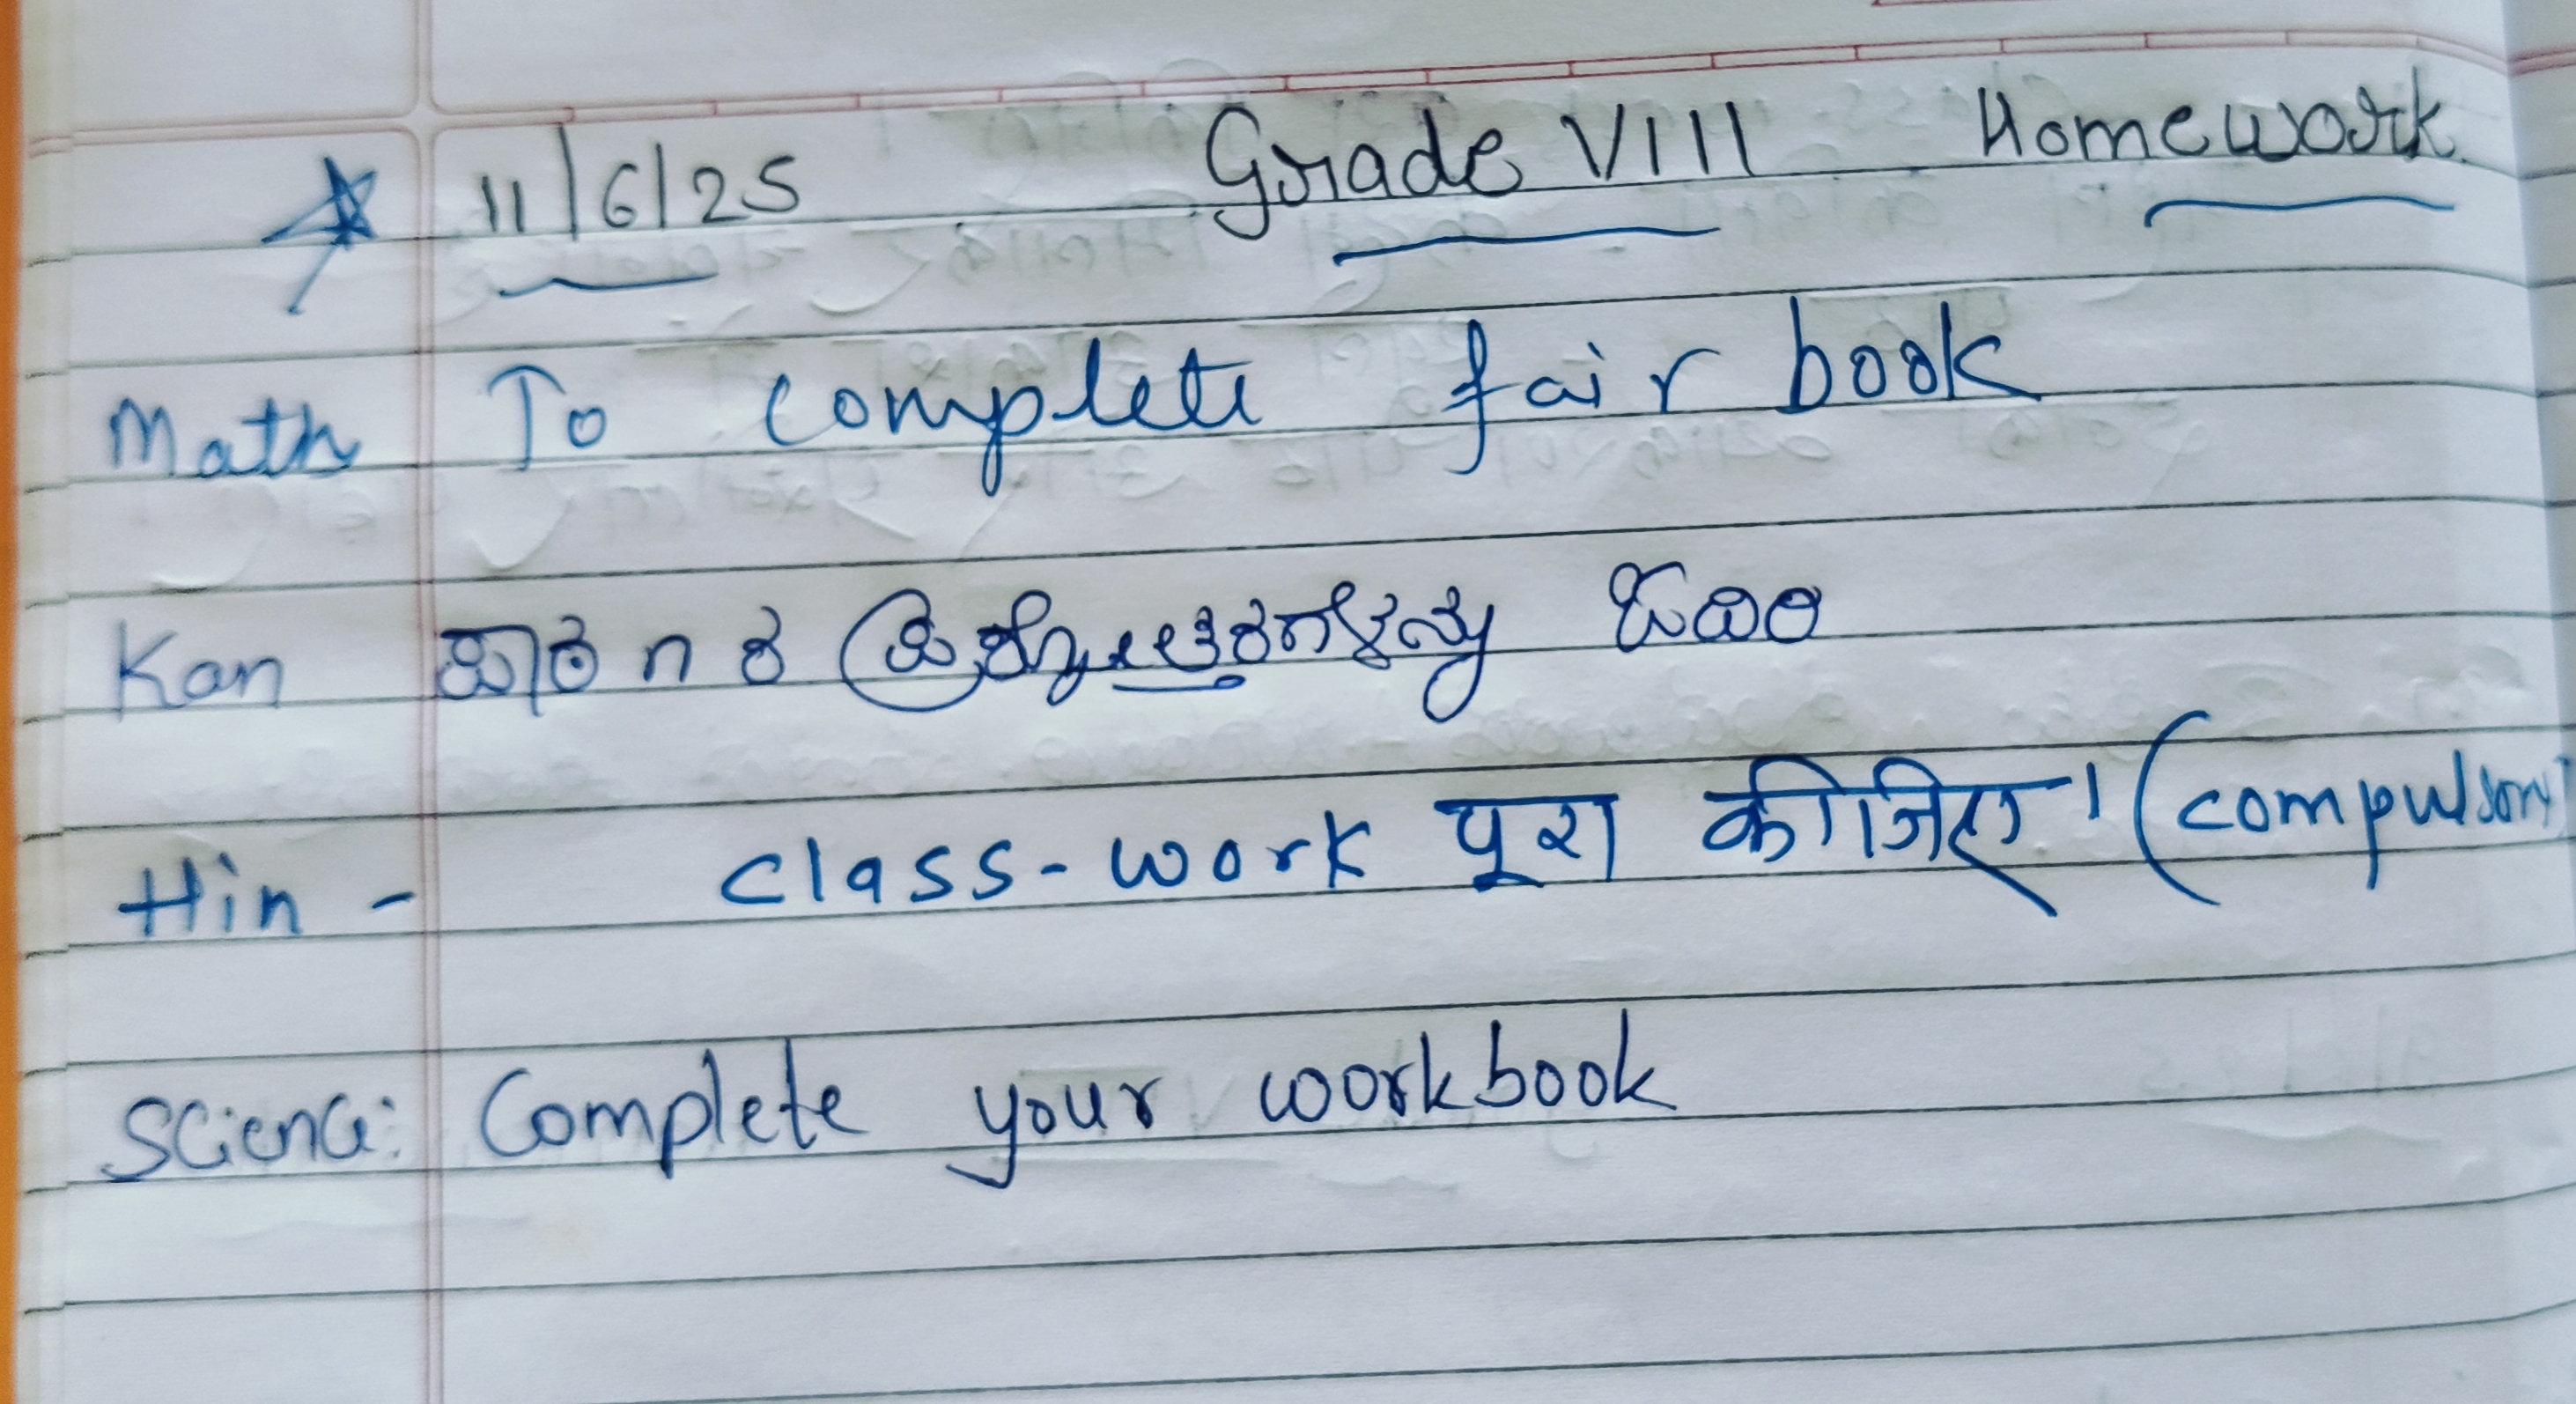 11/6/25 Grade VIII Homework
Math To complete fair book
Kan ಪಾಠ ೧ ರ ಪ್ರಶ್ನೋತ್ತರಗಳನ್ನು ಓದಿರಿ
Hin - class-work पूरा कीजिए। (compulsory)
Science: Complete your workbook